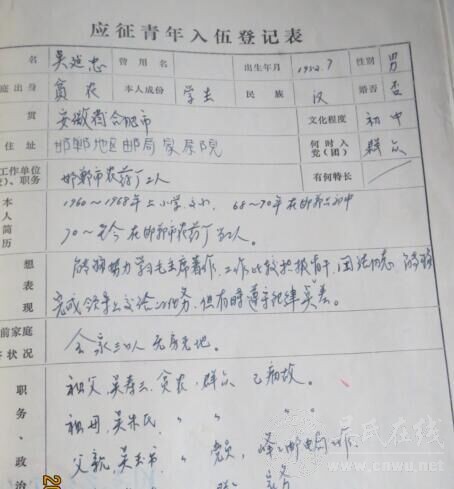 应征青年入伍登记表
名 吴延忠 曾用名 出生年月 1952.7 性别 男
庭出身 贫农 本人成份 学生 民族 汉 婚否 否
贯 安徽省合肥市 文化程度 初中
住址 邯郸地区邮局家属院 何时入党(团) 群众
工作单位 、职务 邯郸市农药厂工人 有何特长
本人简历 1960~1968年上小学 68~70年在邯郸上初中
70~至今在邯郸市农药厂工人。
想表现 能够努力学习毛主席著作,工作比较积极肯干,团结同志,能够
完成领导上交给的任务,但有时遵守纪律较差。
前家庭 状况 全家三口人 无房无地。
职务、政治
祖父,吴寿三,贫农,群众 已病故。
祖母,吴朱氏,〃 〃 〃
父亲,吴玉书,〃 党员,
吴氏在线
www.cawu.net
20